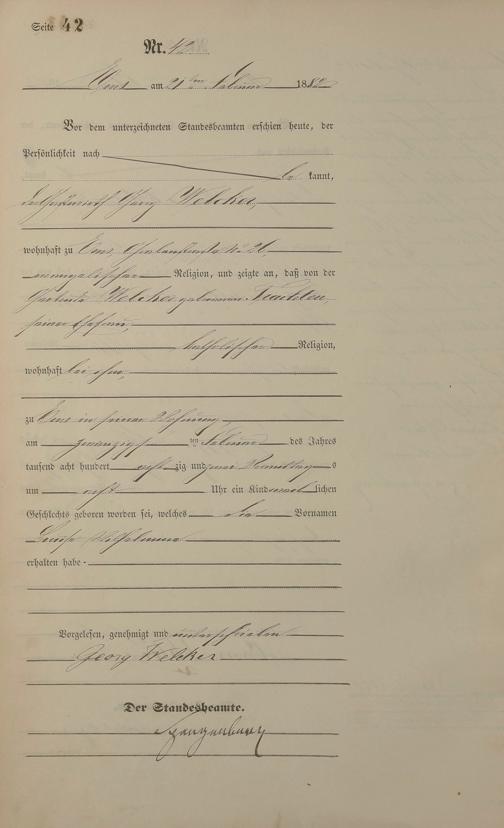 Seite 42
Nr. 42
Ems am 21ten Februar 1882
Vor dem unterzeichneten Standesbeamten erschien heute, der
Persönlichkeit nach
be kannt,
der Georg Welcker,
wohnhaft zu Ems,
evangelischer Religion, und zeigte an, daß von der
Welcker geborenen
seiner Ehefrau,
katholischer Religion,
wohnhaft bei ihm,
zu Ems in seiner Wohnung
am zwanzigsten Februar des Jahres
tausend acht hundert acht zig und zwei Vormittags
um acht Uhr ein Kind lichen
Geschlechts geboren worden sei, welches die Vornamen
Wilhelmine
erhalten habe.
Vorgelesen, genehmigt und unterschrieben
Georg Welcker
Der Standesbeamte.
Spangenberg